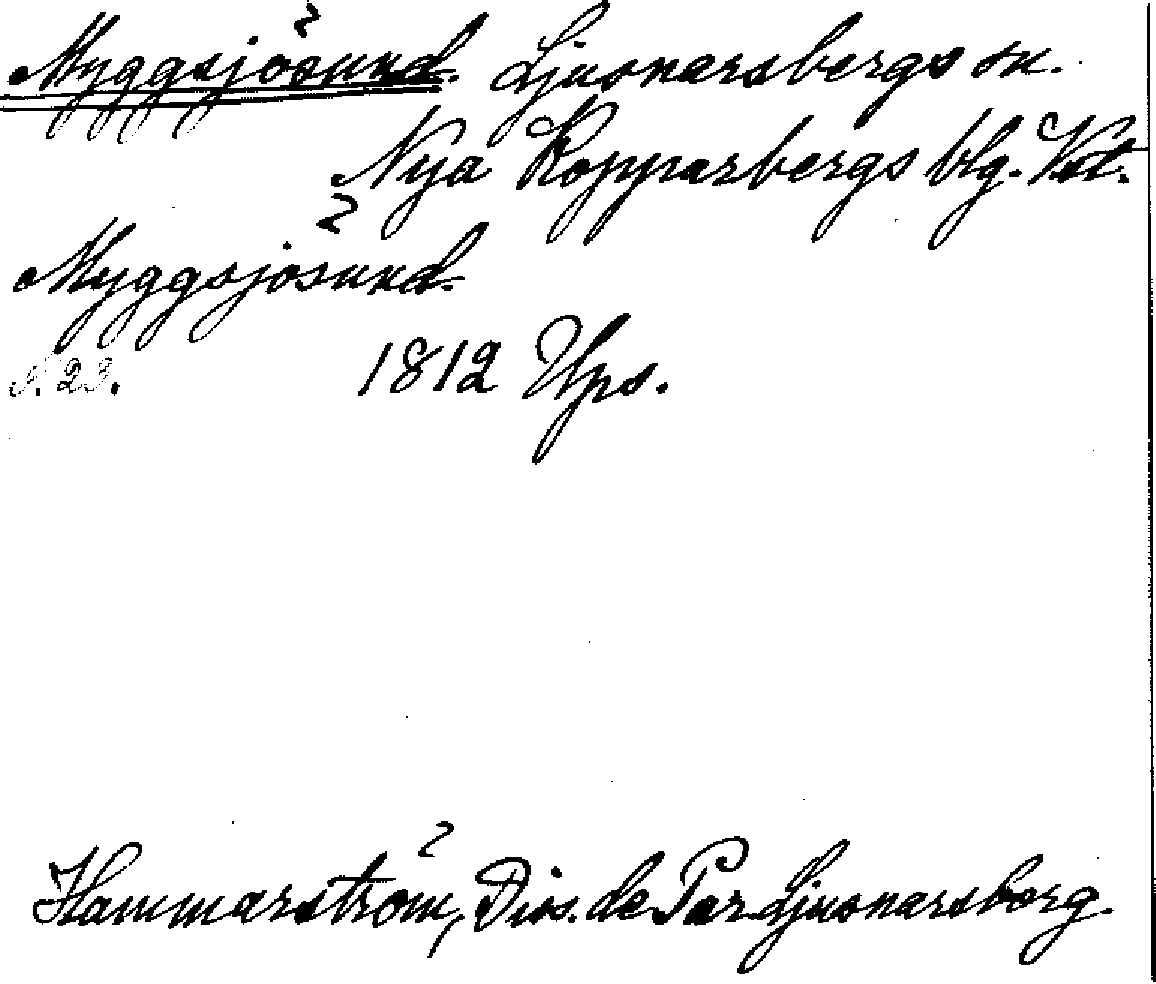 Myggsjösund. Ljusnarsbergs sn.
Nya Kopparbergs blg. Vstl.
Myggsjösund.
s. 23. 1812 Ups.
Hammarström, Diss. de Par. Ljusnarsberg.